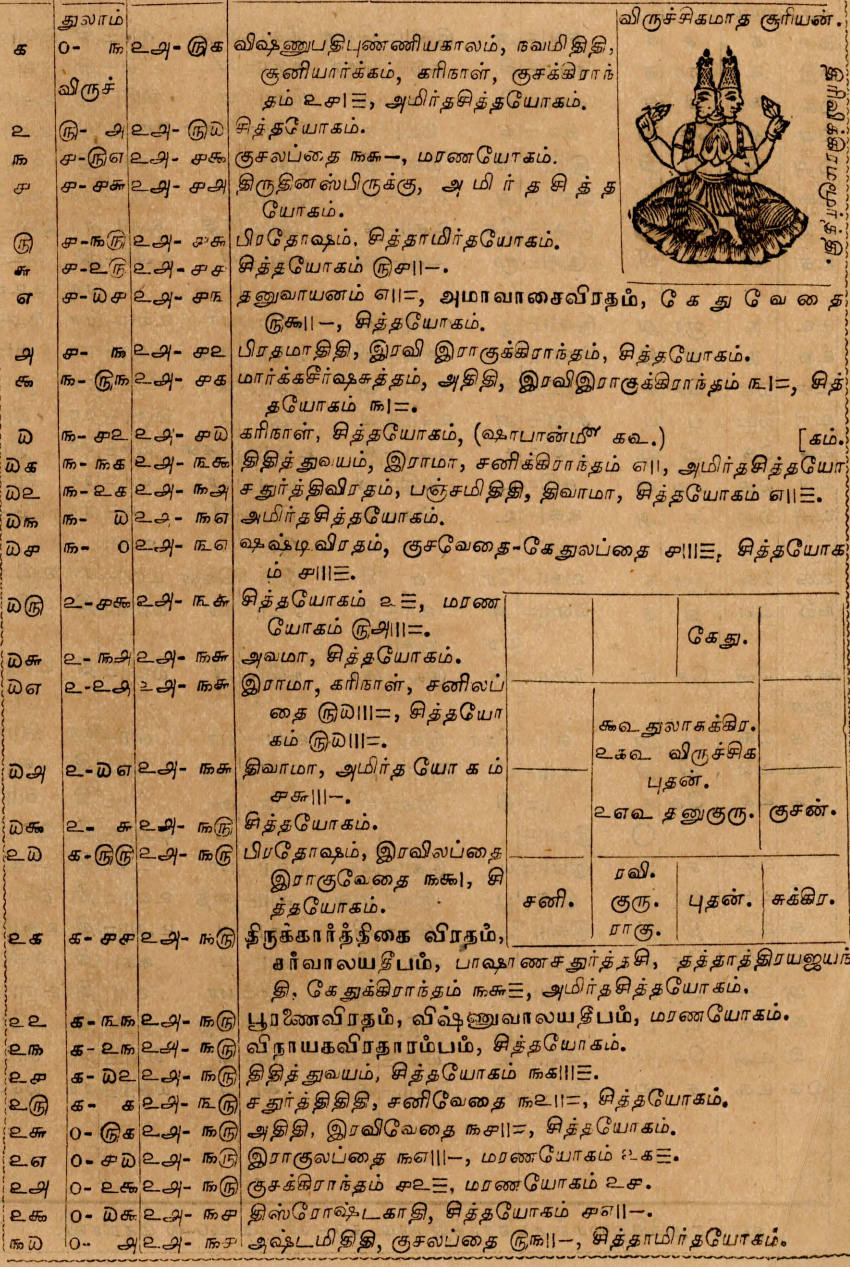 துலாம்
விருச்சிகமாத சூரியன்.
திரிவிக்கிரமமூர்த்தி.
௧ ௦- ௩ ௨௮- ௫௧ விஷ்ணுபதிபுண்ணியகாலம், நவமிதிதி,
விருச் சூனியார்க்கம், கரிநாள், குசக்கிராந்
தம் ௨௪|≡, அமிர்தசித்தயோகம்.
௨ ௫- ௮ ௨௮- ௫௰ சித்தயோகம்.
௩ ௪-௫௭ ௨௮- ௪௯ குசலப்தை ௩௬–, மரணயோகம்.
௪ ௪-௪௬ ௨௮- ௪௮ திருதினஸ்பிருக்கு, அமிர்தசித்த
யோகம்.
௫ ௪-௩௫ ௨௮- ௪௬ பிரதோஷம், சித்தாமிர்தயோகம்.
௬ ௪-௨௫ ௨௮- ௪௪ சித்தயோகம் ௫௪||–.
௭ ௪-௰௪ ௨௮- ௪௩ தனுவாயனம் ௭||=, அமாவாசைவிரதம், கேதுவேதை
௫௯||–, சித்தயோகம்.
௮ ௪- ௩ ௨௮- ௪௨ பிரதமாதிதி, இரவி இராகுக்கிராந்தம், சித்தயோகம்.
௯ ௩-௫௩ ௨௮- ௪௧ மார்க்கசீர்ஷசுத்தம், அதிதி, இரவிஇராகுக்கிராந்தம் ௩|=, சித்
தயோகம் ௩|=.
௰ ௩-௪௨ ௨௮- ௪௰ கரிநாள், சித்தயோகம், (ஷாபான்மீ ௧௳.) [கம்.
௰௧ ௩-௩௧ ௨௮- ௩௯ திதித்துவயம், இராமா, சனிக்கிராந்தம் ௭||, அமிர்தசித்தயோ
௰௨ ௩-௨௧ ௨௮- ௩௮ சதுர்த்திவிரதம், பஞ்சமிதிதி, திவாமா, சித்தயோகம் ௭||≡.
௰௩ ௩- ௰ ௨௮- ௩௭ அமிர்தசித்தயோகம்.
௰௪ ௩- ௦ ௨௮- ௩௭ ஷஷ்டிவிரதம், குசவேதை-கேதுலப்தை ௪|||≡, சித்தயோக
ம் ௪|||≡.
௰௫ ௨-௪௯ ௨௮- ௩௬ சித்தயோகம் ௨≡, மரண
யோகம் ௫௮|||=.
௰௬ ௨-௩௮ ௨௮- ௩௬ அவமா, சித்தயோகம்.
௰௭ ௨-௨௮ ௨௮- ௩௬ இராமா, கரிநாள், சனிலப்
தை ௫௰|||=, சித்தயோ
கம் ௫௰|||=.
௰௮ ௨-௰௭ ௨௮- ௩௬ திவாமா, அமிர்தயோகம்
௪௬|||–.
௰௯ ௨- ௬ ௨௮- ௩௫ சித்தயோகம்.
௨௰ ௧-௫௫ ௨௮- ௩௫ பிரதோஷம், இரவிலப்தை
இராகுவேதை ௩௯|, சி
த்தயோகம்.
கேது.
௯௳ துலாசுக்கிர.
௨௧௳ விருச்சிக
புதன்.
௨௭௳ தனுகுரு.
குசன்.
சனி.
ரவி.
குரு.
ராகு.
புதன்.
சுக்கிர.
௨௧ ௧-௪௪ ௨௮- ௩௫ திருக்கார்த்திகை விரதம்,
சர்வாலயதீபம், பாஷாணசதுர்த்தசி, தத்தாத்திரயஜயந்
தி, கேதுக்கிராந்தம் ௩௬≡, அமிர்தசித்தயோகம்.
௨௨ ௧-௩௩ ௨௮- ௩௫ பூரணைவிரதம், விஷ்ணுவாலயதீபம், மரணயோகம்.
௨௩ ௧-௨௩ ௨௮- ௩௫ விநாயகவிரதாரம்பம், சித்தயோகம்.
௨௪ ௧-௰௨ ௨௮- ௩௫ திதித்துவயம், சித்தயோகம் ௩௧|||≡.
௨௫ ௧- ௧ ௨௮- ௩௫ சதுர்த்திதிதி, சனிவேதை ௩௨||=, சித்தயோகம்.
௨௬ ௦-௫௧ ௨௮- ௩௫ அதிதி, இரவிவேதை ௩௪||=, சித்தயோகம்.
௨௭ ௦-௪௰ ௨௮- ௩௫ இராகுலப்தை ௩௭|||–, மரணயோகம் ௨௧≡.
௨௮ ௦-௨௯ ௨௮- ௩௫ குசக்கிராந்தம் ௪௨≡, மரணயோகம் ௨௪.
௨௯ ௦-௰௬ ௨௮- ௩௪ திஸ்ரோஷ்டகாதி, சித்தயோகம் ௪௭||–.
௩௰ ௦- ௮ ௨௮- ௩௪ அஷ்டமிதிதி, குசலப்தை ௫௩||–, சித்தாமிர்தயோகம்.